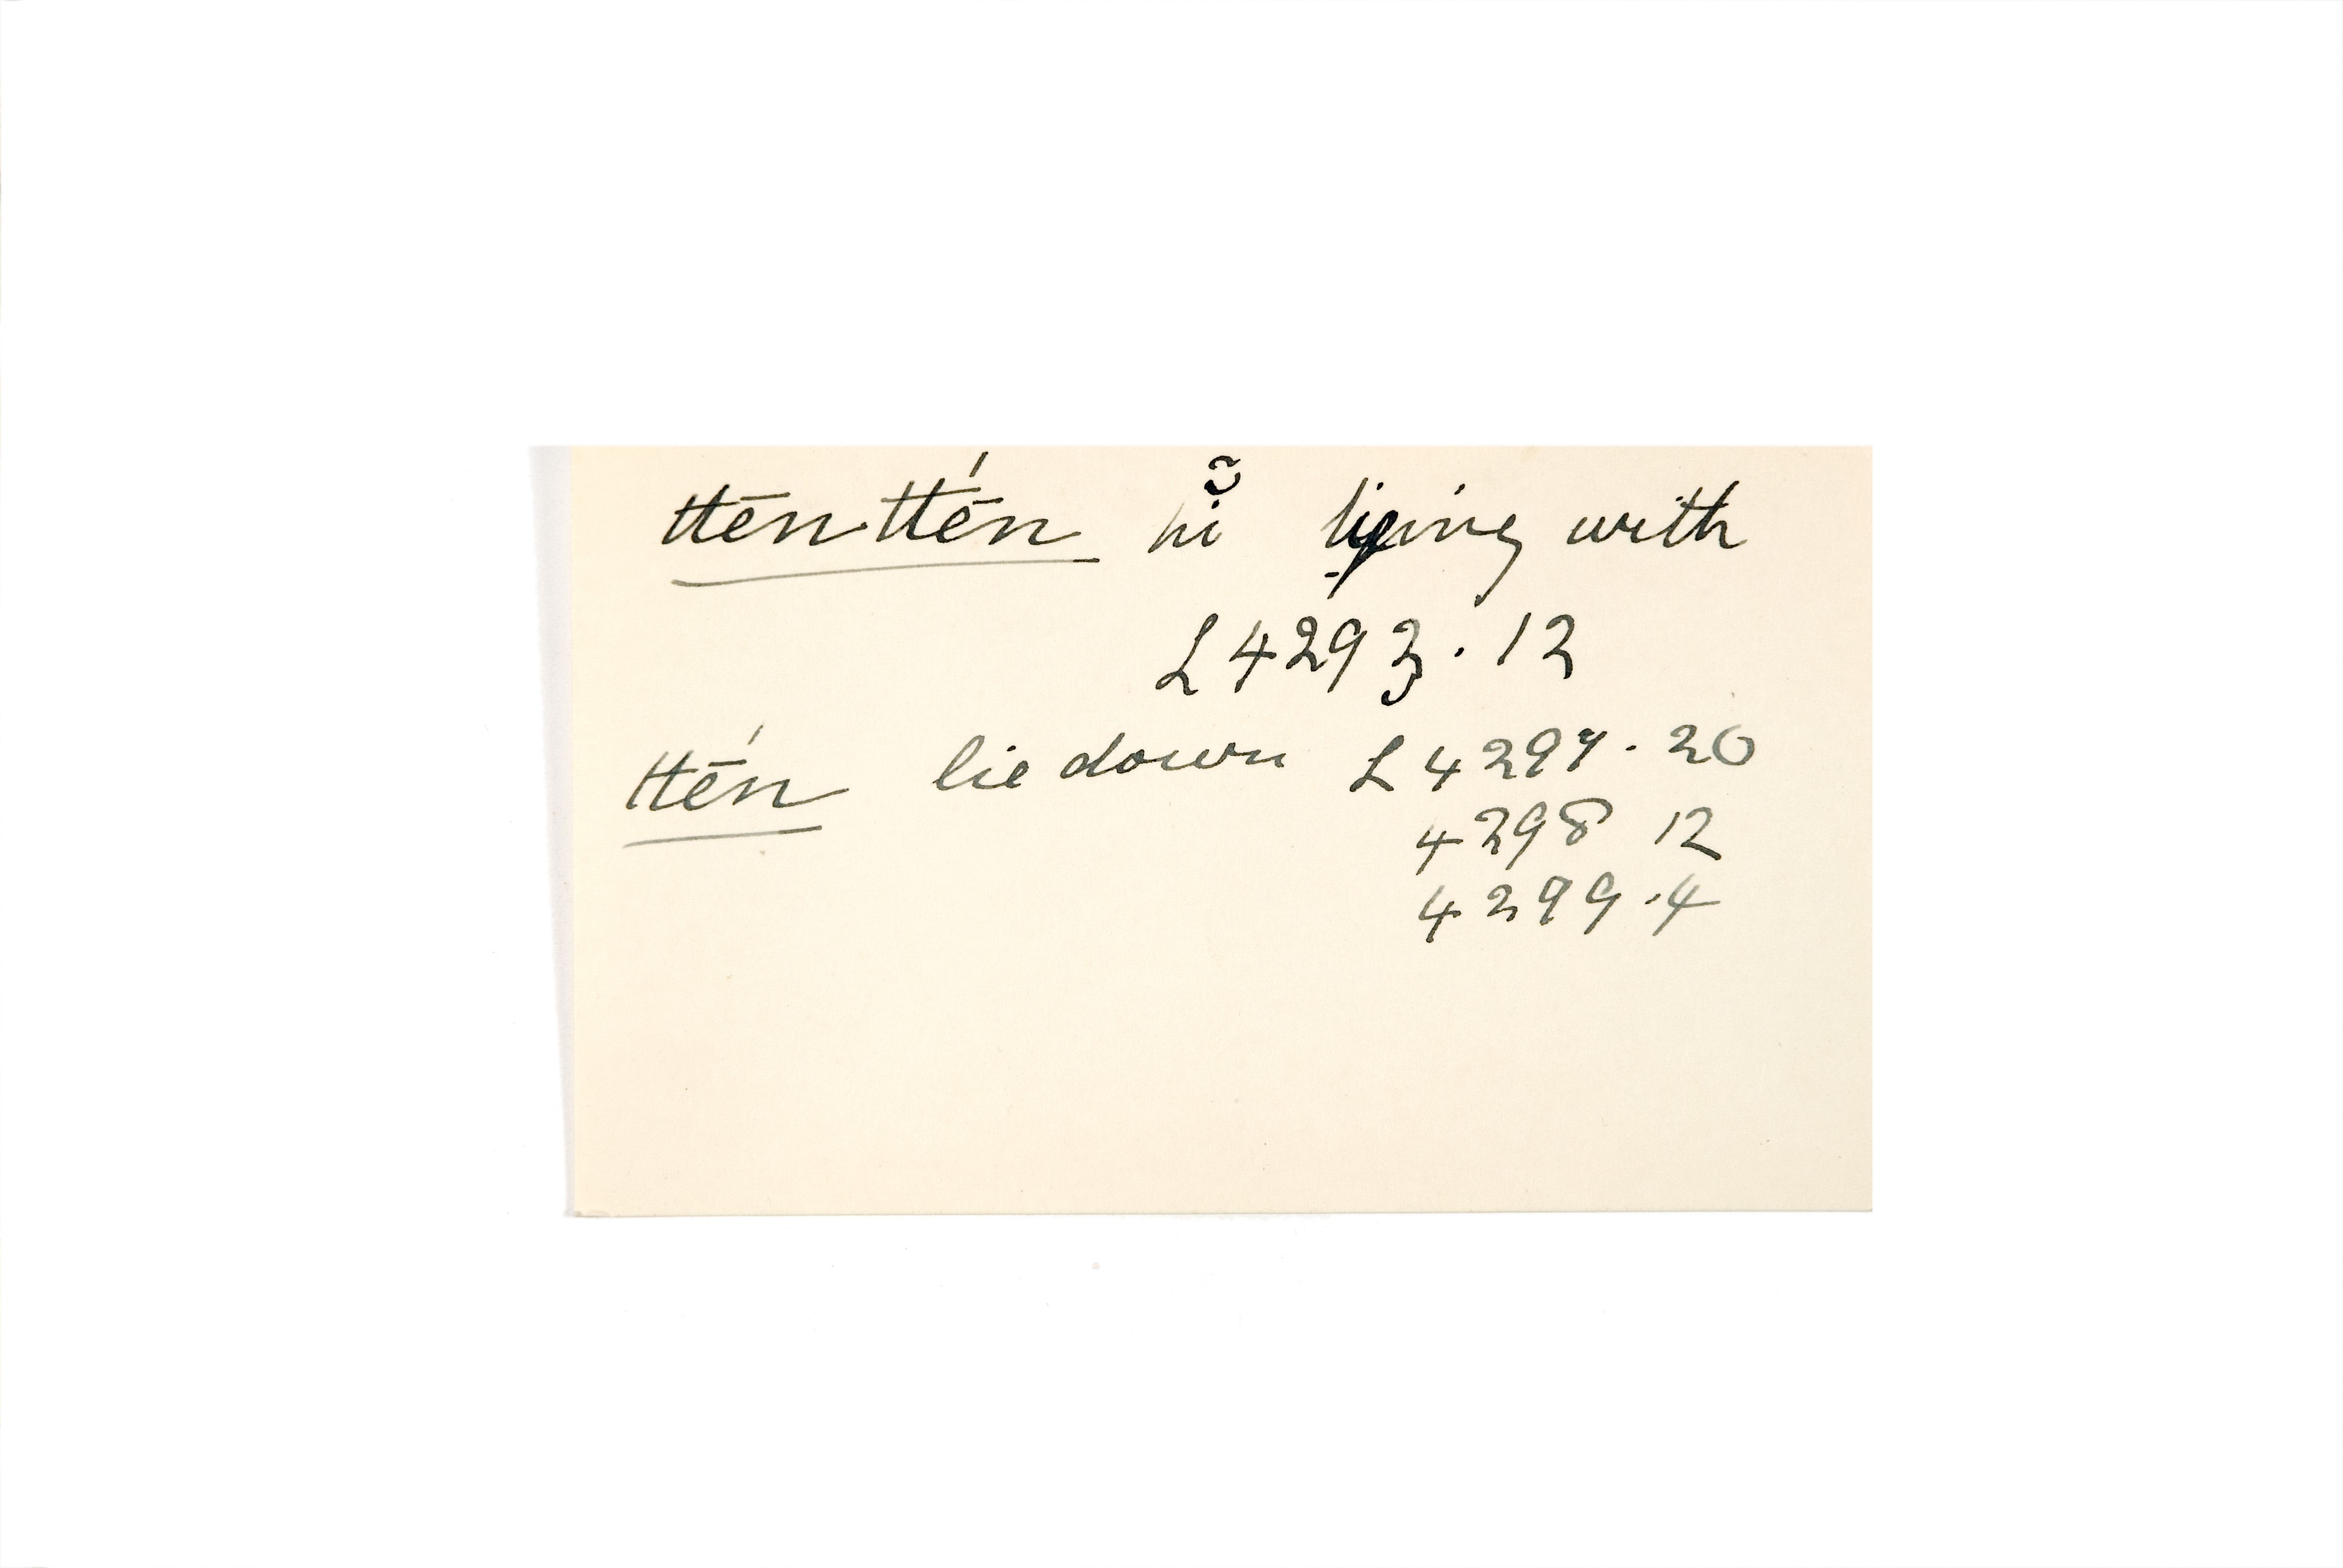 ttēnttḗn hĩ̆ lying with
L 4293.12
ttḗn lie down L 4297.20
4298 12
4299.4